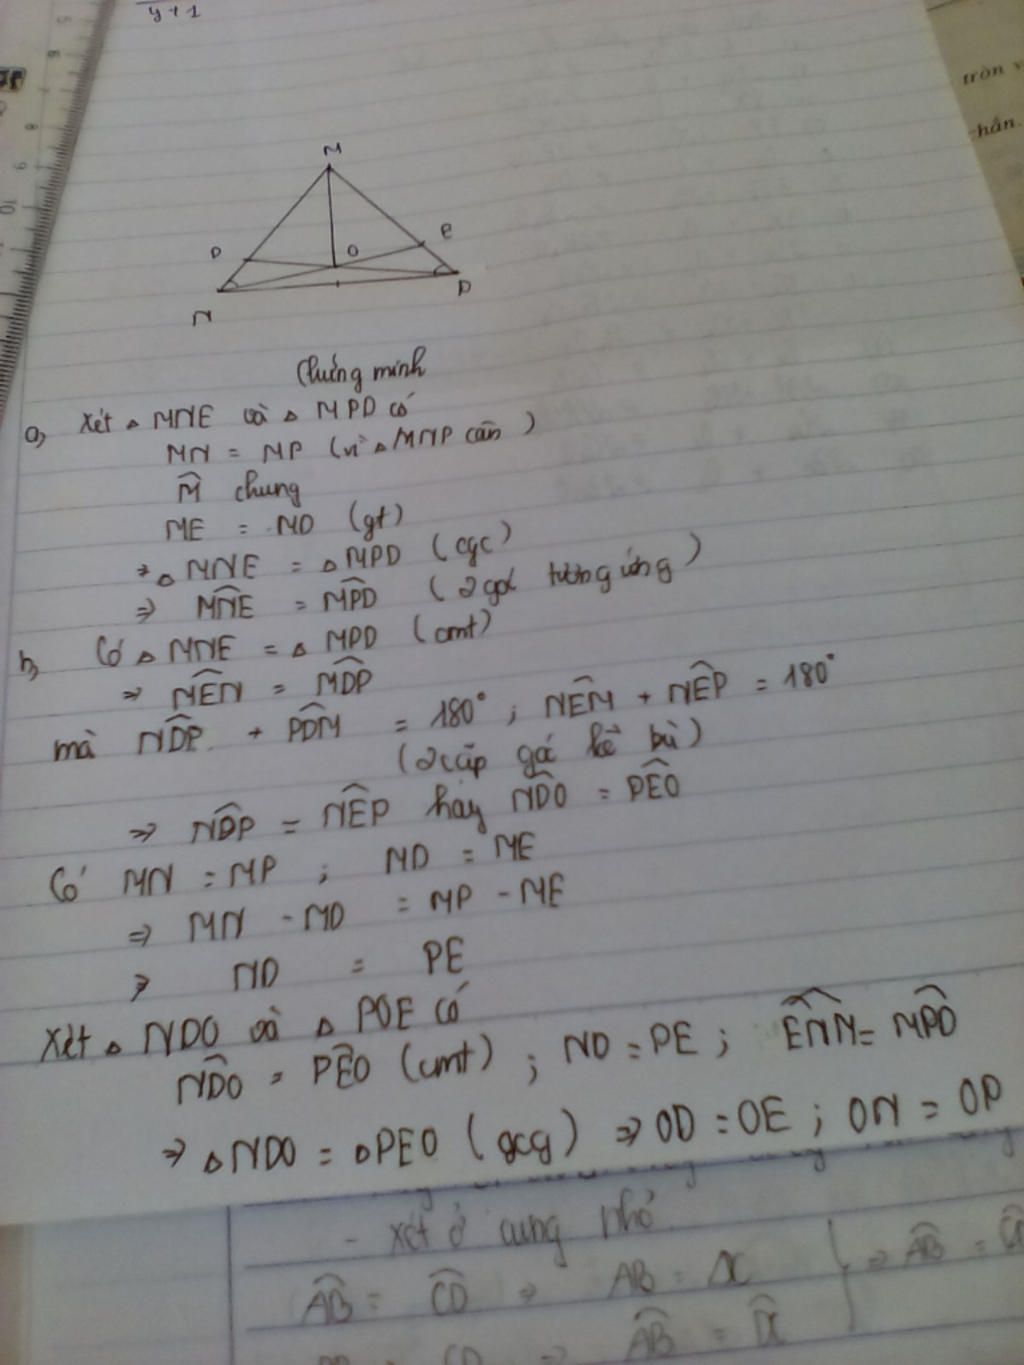 y+1
tròn
hẳn.
M
D
O
e
N
P
Chứng minh
a, Xét △ MNE và △ MPD có
MN = MP (vì △ MNP cân)
M̂ chung
ME = MD (gt)
⇒ △ MNE = △ MPD (cgc)
⇒ MN̂E = MP̂D (2 góc tương ứng)
b, Có △ MNE = △ MPD (cmt)
⇒ MÊN = MD̂P
mà ND̂P + PD̂M = 180° ; NÊM + NÊP = 180°
(2 cặp góc kề bù)
⇒ ND̂P = NÊP hay ND̂O = PÊO
Có MN = MP ; MD = ME
⇒ MN - MD = MP - ME
⇒ ND = PE
Xét △ NDO và △ POE có
ND̂O = PÊO (cmt) ; ND = PE ; EN̂M = MP̂D
⇒ △ NDO = △ PEO (gcg) ⇒ OD = OE ; ON = OP
- xét ở cung nhỏ
AB̂ = CD̂ ⇒ AB = DC
⇒ AB̂ =
CD ⇒ AB̂ = DĈ